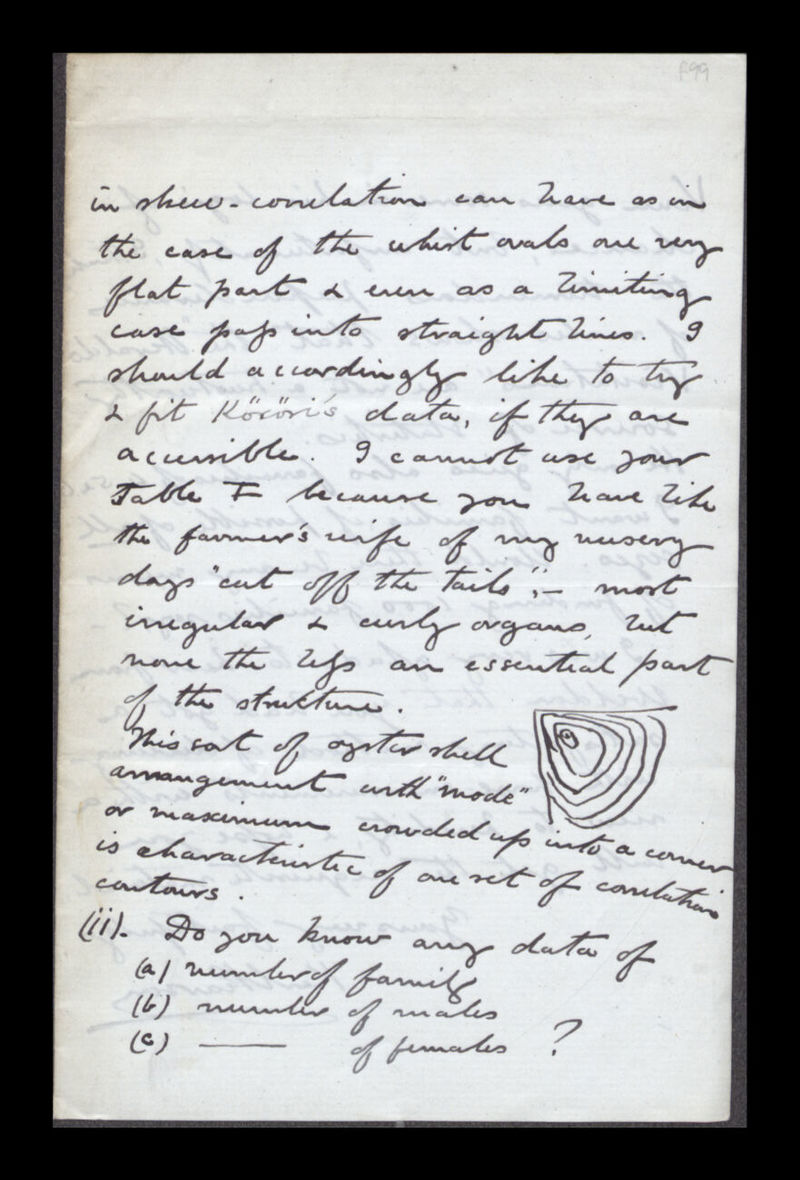 f99
in skew-correlation can have as in
the case of the whist ovals one very
flat part & even as a limiting
case pass into straight lines. I
should accordingly like to try
& fit Körösi's data, if they are
accessible. I cannot use your
Table I because you have like
the farmer's wife of my nursery
days "cut off the tails"; – most
irregular & curly organs, but
none the less an essential part
of the structure.
This sort of oyster shell
arrangement with "mode"
or maximum crowded up into a corner
is characteristic of one set of correlation
contours.
(ii). Do you know any data of
(a) number of family
(b) number of males
(c) —— of females ?